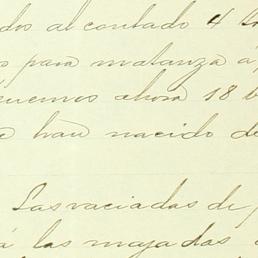 dos al contado 4
para matanza á
tenemos ahora 18 b
e han nacido de
Las vaciadas de
á las majadas